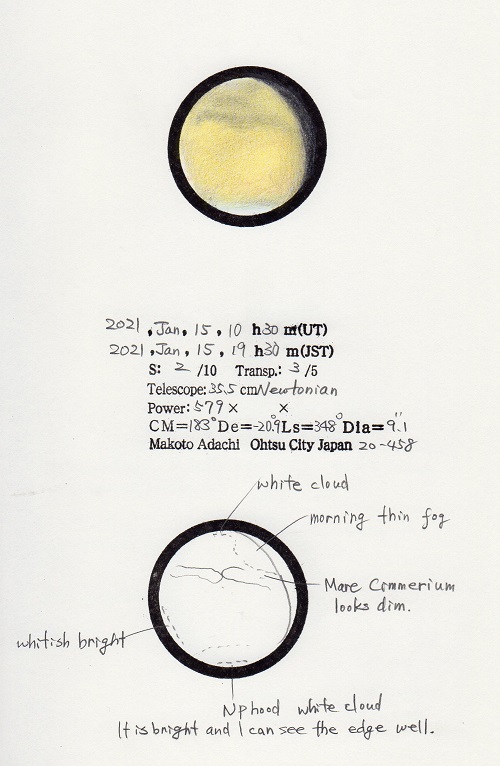 2021, Jan, 15, 10 h 30 m (UT)
2021, Jan, 15, 19 h 30 m (JST)
S: 2 /10 Transp.: 3 /5
Telescope: 35.5 cm Newtonian
Power: 579 × ×
CM=183° De=-20.9° Ls=348° Dia=9.1"
Makoto Adachi Ohtsu City Japan 20-458
white cloud
morning thin fog
Mare Cimmerium
looks dim.
whitish bright
Nphood white cloud
It is bright and I can see the edge well.